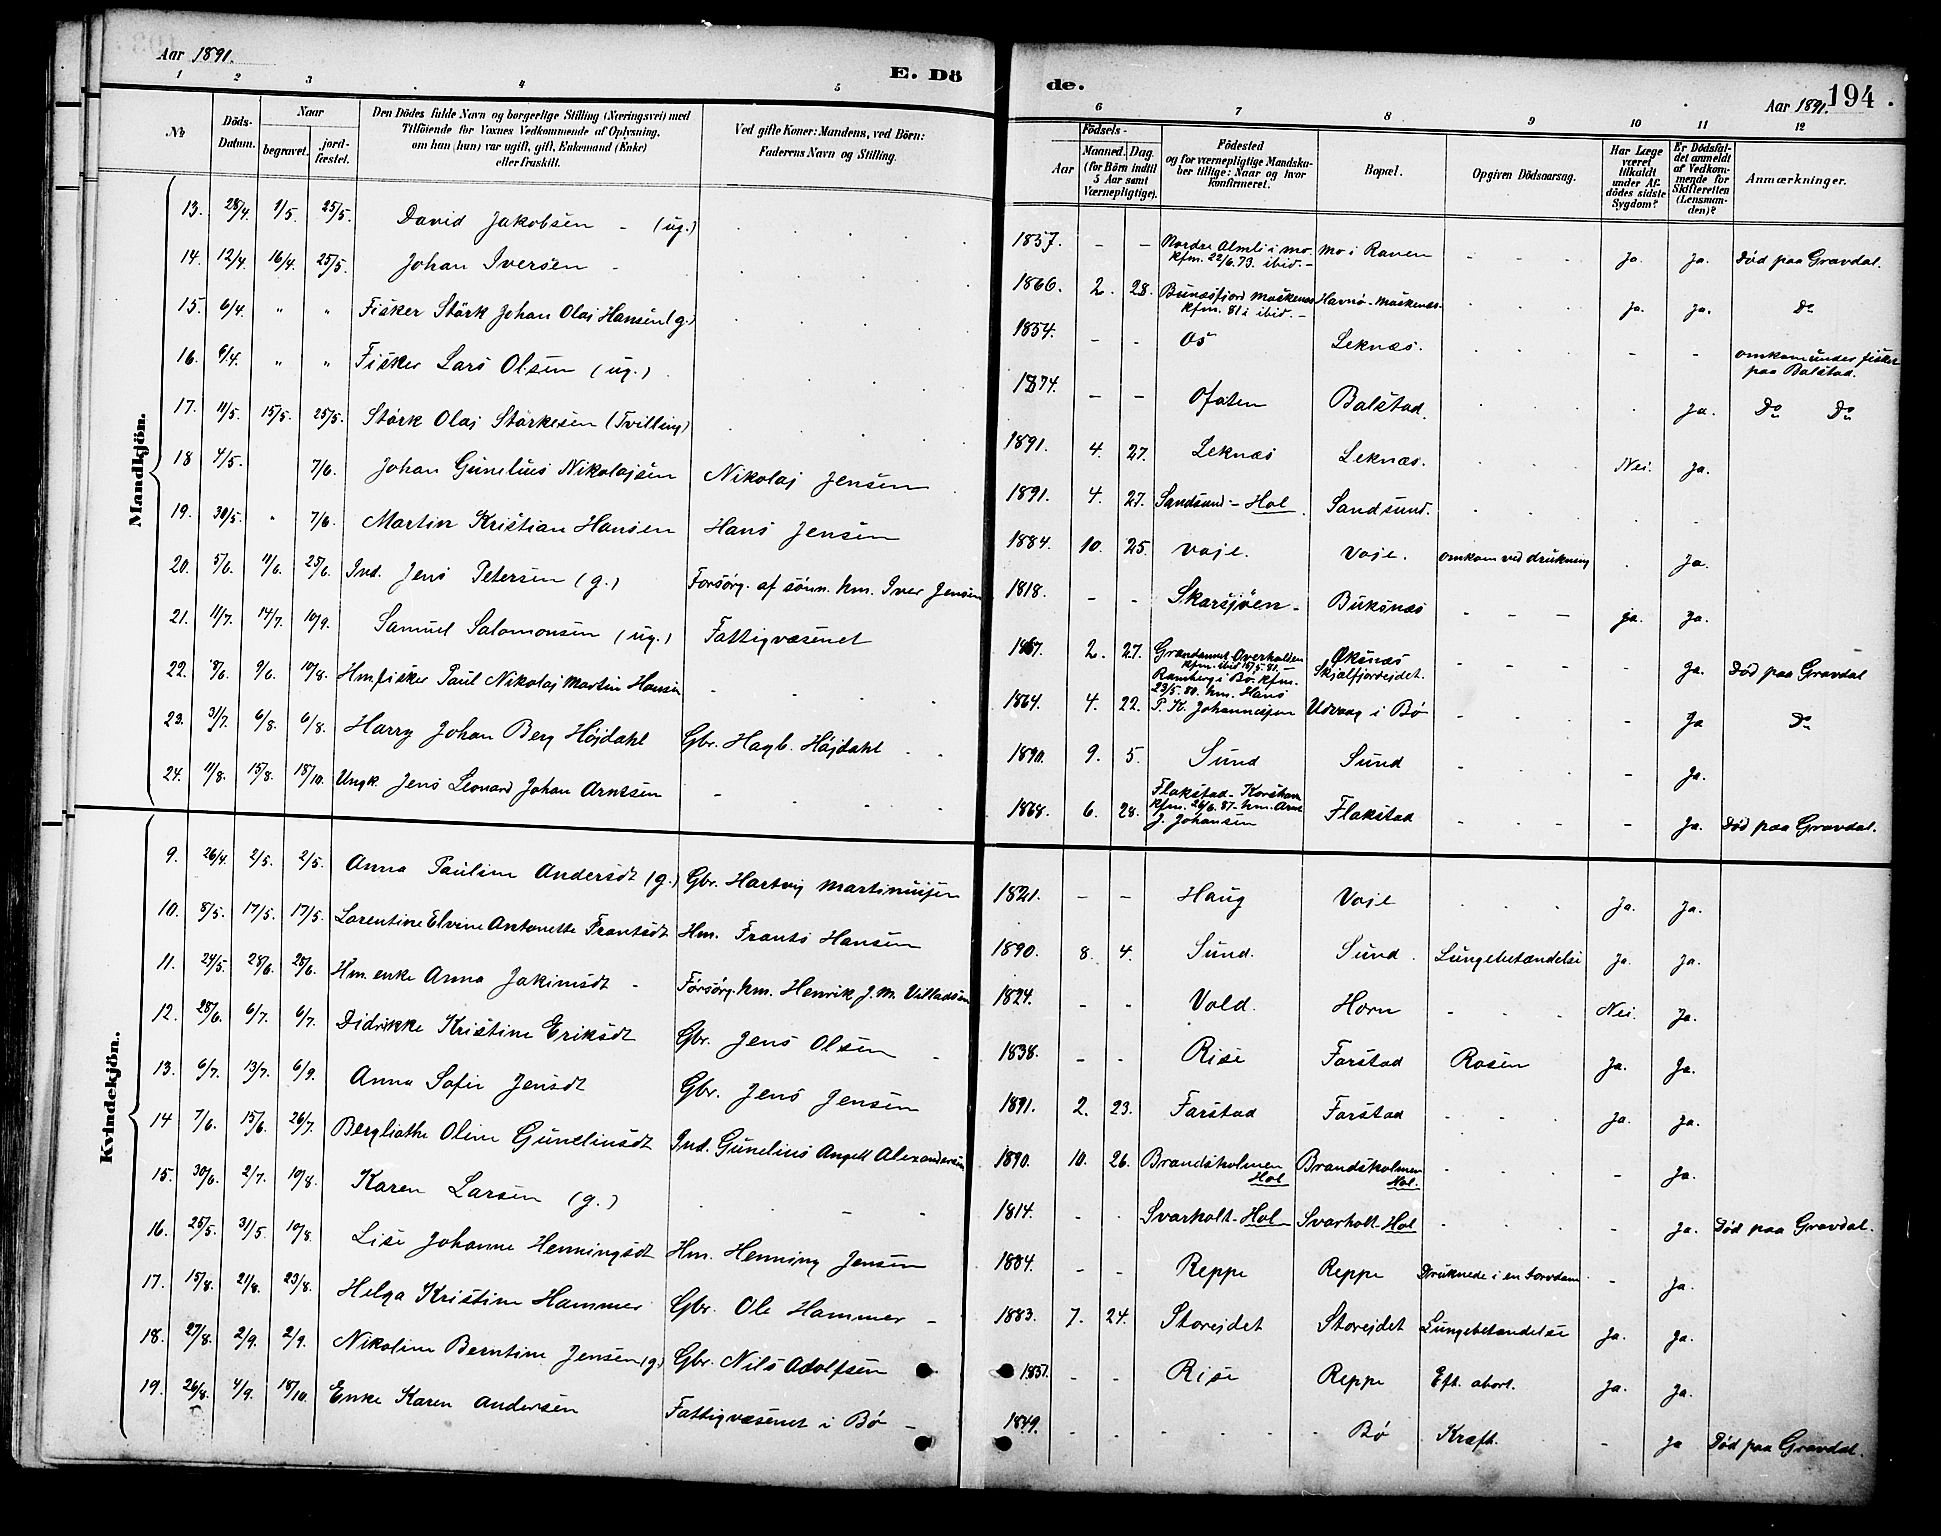 Aar 1891.
E. Dö
de.
Aar 1891. 194.
1 2 3 4 5 6 7 8 9 10 11 12
No
Döds-Datum.
Naar
begravet.
jord-fæstet.
Den Dödes fulde Navn og borgerlige Stilling (Næringsvei) med
Tilföiende for Voxnes Vedkommende af Oplysning,
om han (hun) var ugift, gift, Enkemand (Enke)
eller fraskilt.
Ved gifte Koner: Mandens, ved Börn:
Faderens Navn og Stilling.
Födsels-
Aar
Maaned. Dag.
(for Börn indtil
5 Aar samt
Værnepligtige).
Födested
og for værnepligtige Mandska-
ber tillige: Naar og hvor
konfirmeret.
Bopæl.
Opgiven Dödsaarsag.
Har Læge
været
tilkaldt
under Af-
dödes sidste
Sygdom?
Er Dödsfal-
det anmeldt
af Vedkom-
mende for
Skifteretten
(Lensman-
den)?
Anmærkninger.
Mandkjön.
13. 28/4. 1/5. 25/5. David Jakobsen - (ug.)
14. 12/4. 16/4. 25/5. Johan Iversen -
15. 6/4. " " Fisker Stärk Johan Olaj Hansen (g.)
16. 6/4. " " Fisker Lars Olsen (ug.)
17. 11/5. 15/5. 25/5. Stärk Olaj Stärkesen (Tvilling)
18 4/5. 7/6. Johan Gunelius Nikolajsen Nikolaj Jensen
19. 30/5. " 7/6. Martin Kristian Hansen Hans Jensen
20. 5/6. 11/6. 25/6. Ind. Jens Petersen (g.) Forsörg. af sönn. hm. Iver Jensen
21. 11/7. 14/7. 10/9. Samuel Salomonsen (ug.) Fattigvæsenet
22. 8/6. 9/6. 10/8. Hm. fisker Paul Nikolaj Martin Hansen
23. 31/7. 6/8. 6/8. Harry Johan Berg Höjdahl Gbr. Hagb. Höjdahl
24. 11/8. 15/8. 18/10. Ungk. Jens Leonard Johan Arntsen
Kvindekjön.
9. 26/4. 2/5. 2/5. Anna Pauline Andersdt (g.) Gbr. Hartvig Martinussen
10. 8/5. 17/5. 17/5. Lorentine Elvine Antonette Frantsdt Hm. Frants Hansen
11. 24/5. 28/6. 28/6. Hm. enke Anna Jakimsdt - Forsörg. hm. Henrik J. M. Villadsen
12. 28/6. 6/7. 6/7. Didrikke Kristine Eriksdt Gbr. Jens Olsen
13. 6/7. 13/7. 6/9. Anna Sofie Jensdt Gbr. Jens Jensen
14 7/6. 15/6. 26/7. Bergliothe Oline Guneliusdt Ind. Gunelius Angell Alexandersen
15. 30/6. 2/7. 10/8. Karen Larsen (g.)
16. 25/5. 31/5. 10/8. Lise Johanne Henningsdt Hm. Henning Jensen
17. 15/8. 21/8. 23/8. Helga Kristine Hammer Gbr. Ole Hammer -
18. 27/8. 2/9. 2/9. Nikoline Berntine Jensen (g) Gbr. Nils Adolfsen
19. 26/8. 4/9. 18/10. Enke Karen Andersen Fattigvæsenet i Bö -
1857. - - Nordre Almli i Mo. Mo i Ranen ja. ja. Död paa Gravdal.
kfm. 22/6.73. ibid. -
1866. 2. 28. Bunæsfjord Moskenæs Havnö-Moskenæs. ja. ja. Do
kfm. 81 i ibid. -
1854. - - Os Leknæs. - - omkom under fisket
paa Balstad.
1874. - - Ofoten Balstad. ja. Do Do
1891. 4. 27. Leknæs Leknæs. Nei. ja.
1891. 4. 27. Sandsund - Hol. Sandsund.
1884. 10. 25. Voje. Voje. omkom ved drukning ja.
1818. - - Skarsjöen - Buksnæs - - - ja. ja.
1867. 2. 27. Öksnæs Ja. Död paa Gravdal
kfm. ibid 15/5.81. Skjelfjordejdet.
1864. 4. 22. Ramberg i Bö. kfm. Udvaag i Bö Ja Do
23/5.80. hm. Hans
P. K. Johannessen
1890. 9. 5. Sund Sund - Ja.
1868. 6. 28. Flakstad - Flakstad - Ja. Död paa Gravdal.
kfm. 26/6.87 - hm. Arnt
J. Johansen
1821. - - Haug Voje Ja. Ja.
1890. 8. 4. Sund. Sund. Lungebetændelse Ja. Ja.
1824. - - Vold. Horn Nei. Ja.
1838. - - Rise Farstad Rosen Ja. Ja.
1891. 2. 23. Farstad Farstad - - Ja. Ja.
1890. 10. 26. Brandsholmen Brandsholmen - Ja.
Hol Hol.
1814. - - Svarholt - Hol Svarholt - Hol - Ja. Död paa Gravdal.
1884. - - Reppe Reppe Druknede i en torvdam - Ja.
1883. 7. 24. Storejdet Storejdet Lungebetændelse Ja. Ja.
1851. - - Rise Reppe Eft. abort. Ja. Ja.
1849. - - Bö Kræft. - Ja Död paa Gravdal.